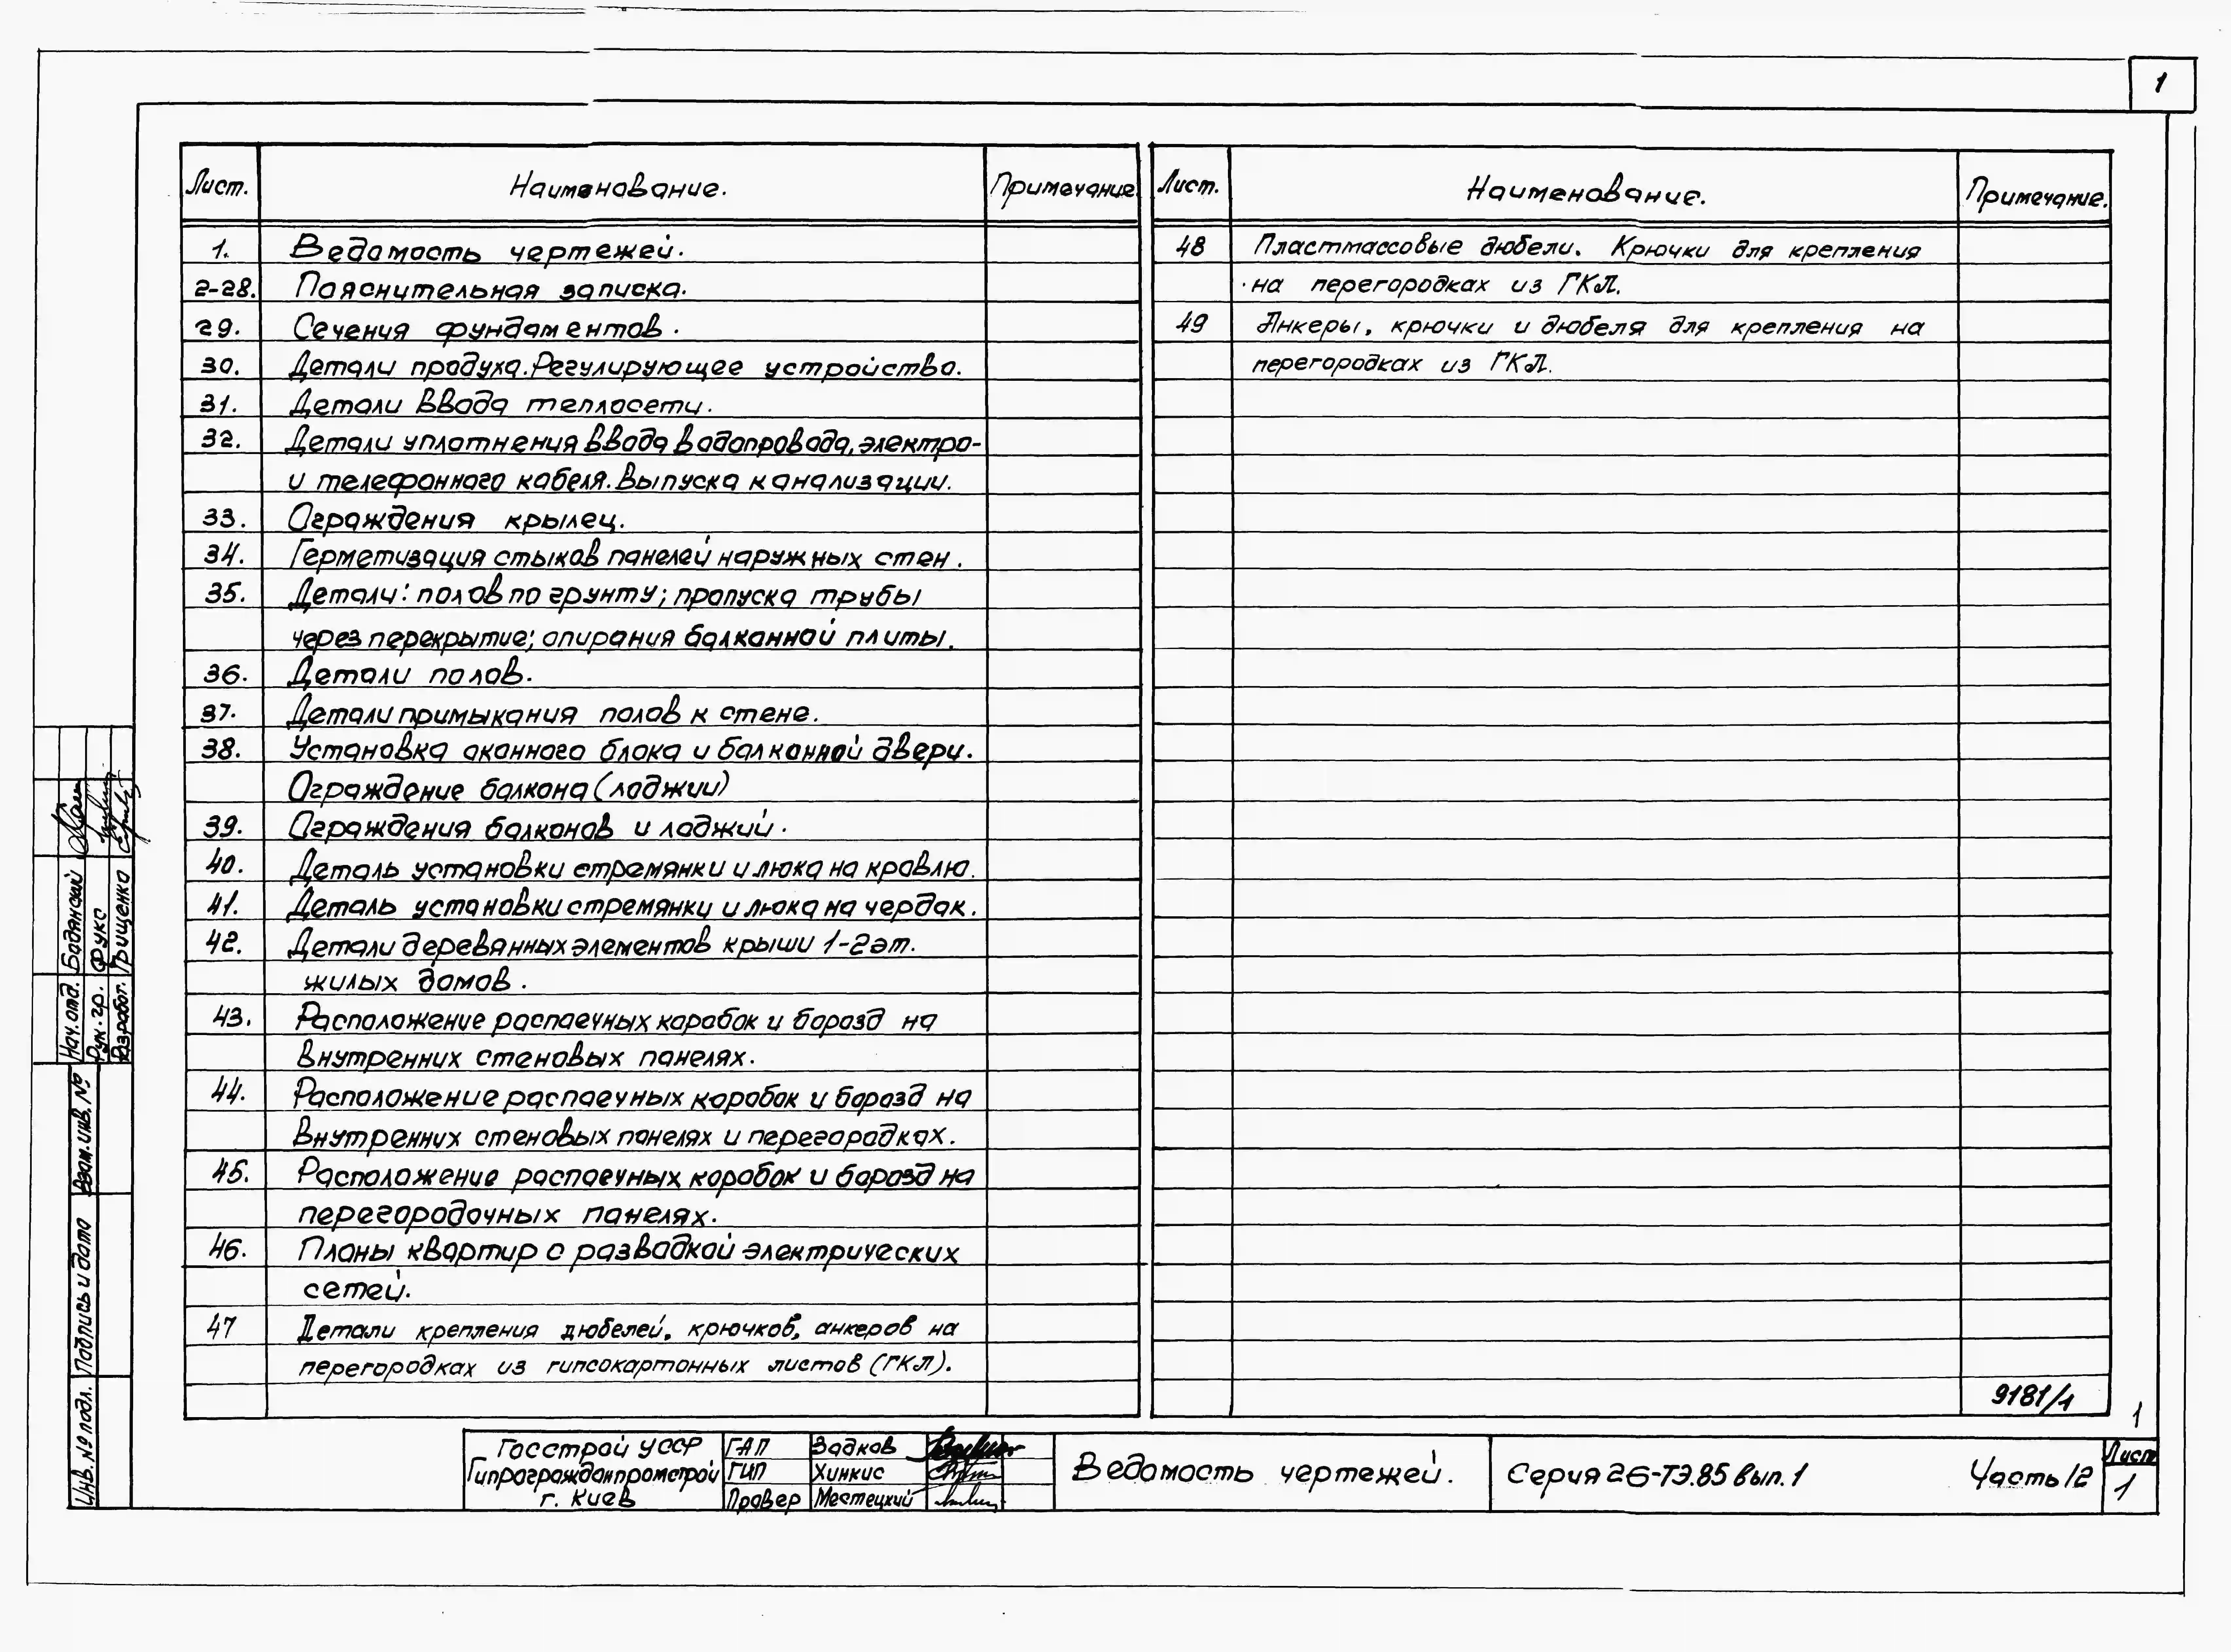 1
Лист.
Наименование.
Примечание
1.
Ведомость чертежей.
2-28.
Пояснительная записка.
29.
Сечения фундаментов.
30.
Детали продуха. Регулирующее устройство.
31.
Детали ввода теплосети.
32.
Детали уплотнения ввода водопровода, электро-
и телефонного кабеля. Выпуска канализации.
33.
Ограждения крылец.
34.
Герметизация стыков панелей наружных стен.
35.
Детали: полов по грунту; пропуска трубы
через перекрытие; опирания балконной плиты.
36.
Детали полов.
37.
Детали примыкания полов к стене.
38.
Установка оконного блока и балконной двери.
Ограждение балкона (лоджии)
39.
Ограждения балконов и лоджий.
40.
Деталь установки стремянки и люка на кровлю.
41.
Деталь установки стремянки и люка на чердак.
42.
Детали деревянных элементов крыши 1-2 эт.
жилых домов.
43.
Расположение распаечных коробок и борозд на
внутренних стеновых панелях.
44.
Расположение распаечных коробок и борозд на
внутренних стеновых панелях и перегородках.
45.
Расположение распаечных коробок и борозд на
перегородочных панелях.
46.
Планы квартир с разводкой электрических
сетей.
47
Детали крепления дюбелей, крючков, анкеров на
перегородках из гипсокартонных листов (ГКЛ).
Лист.
Наименование.
Примечание.
48
Пластмассовые дюбели. Крючки для крепления
на перегородках из ГКЛ.
49
Анкеры, крючки и дюбеля для крепления на
перегородках из ГКЛ.
9181/1
1
Нач. отд. Бодянский
Рук. гр. Фукс
Разработ. Грищенко
Взам. инв. №
Подпись и дата
Инв. № подл.
Госстрой УССР
Гипрогражданпромстрой
г. Киев
ГАП Задков
ГИП Хинкис
Провер Местецкий
Ведомость чертежей.
Серия 26-ТЭ.85 вып. 1
Часть 12
Лист
1